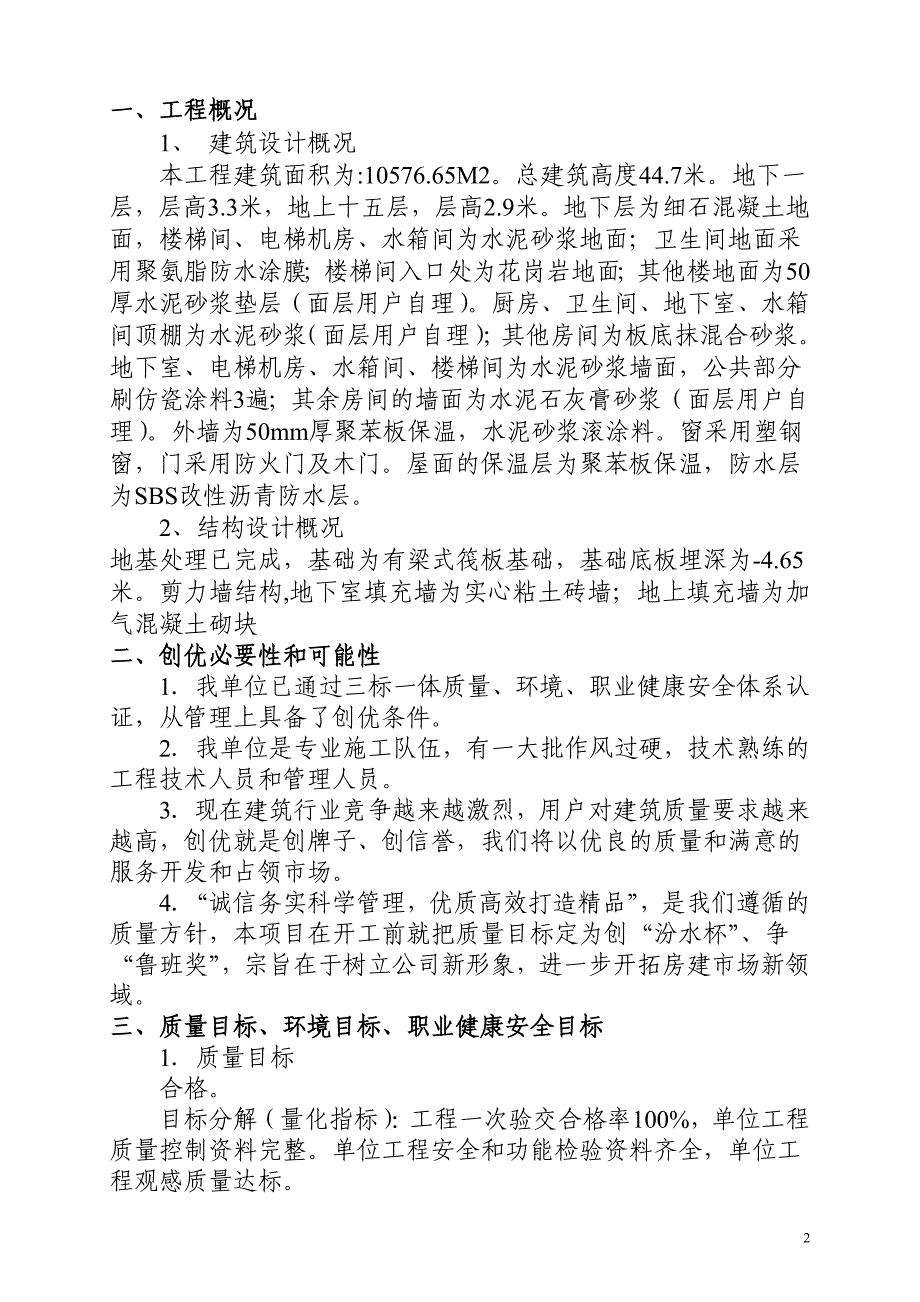 一、工程概况
1、 建筑设计概况
本工程建筑面积为:10576.65M2。总建筑高度44.7米。地下一
层，层高3.3米，地上十五层，层高2.9米。地下层为细石混凝土地
面，楼梯间、电梯机房、水箱间为水泥砂浆地面；卫生间地面采
用聚氨脂防水涂膜; 楼梯间入口处为花岗岩地面; 其他楼地面为50
厚水泥砂浆垫层（面层用户自理）。厨房、卫生间、地下室、水箱
间顶棚为水泥砂浆(面层用户自理); 其他房间为板底抹混合砂浆。
地下室、电梯机房、水箱间、楼梯间为水泥砂浆墙面，公共部分
刷仿瓷涂料3遍; 其余房间的墙面为水泥石灰膏砂浆（面层用户自
理）。外墙为50mm厚聚苯板保温，水泥砂浆滚涂料。窗采用塑钢
窗，门采用防火门及木门。屋面的保温层为聚苯板保温，防水层
为SBS改性沥青防水层。
2、结构设计概况
地基处理已完成，基础为有梁式筏板基础，基础底板埋深为-4.65
米。剪力墙结构,地下室填充墙为实心粘土砖墙；地上填充墙为加
气混凝土砌块
二、创优必要性和可能性
1. 我单位已通过三标一体质量、环境、职业健康安全体系认
证，从管理上具备了创优条件。
2. 我单位是专业施工队伍，有一大批作风过硬，技术熟练的
工程技术人员和管理人员。
3. 现在建筑行业竞争越来越激烈，用户对建筑质量要求越来
越高，创优就是创牌子、创信誉，我们将以优良的质量和满意的
服务开发和占领市场。
4. “诚信务实科学管理，优质高效打造精品”，是我们遵循的
质量方针，本项目在开工前就把质量目标定为创“汾水杯”、争
“鲁班奖”，宗旨在于树立公司新形象，进一步开拓房建市场新领
域。
三、质量目标、环境目标、职业健康安全目标
1. 质量目标
合格。
目标分解（量化指标）: 工程一次验交合格率100%，单位工程
质量控制资料完整。单位工程安全和功能检验资料齐全，单位工
程观感质量达标。
2